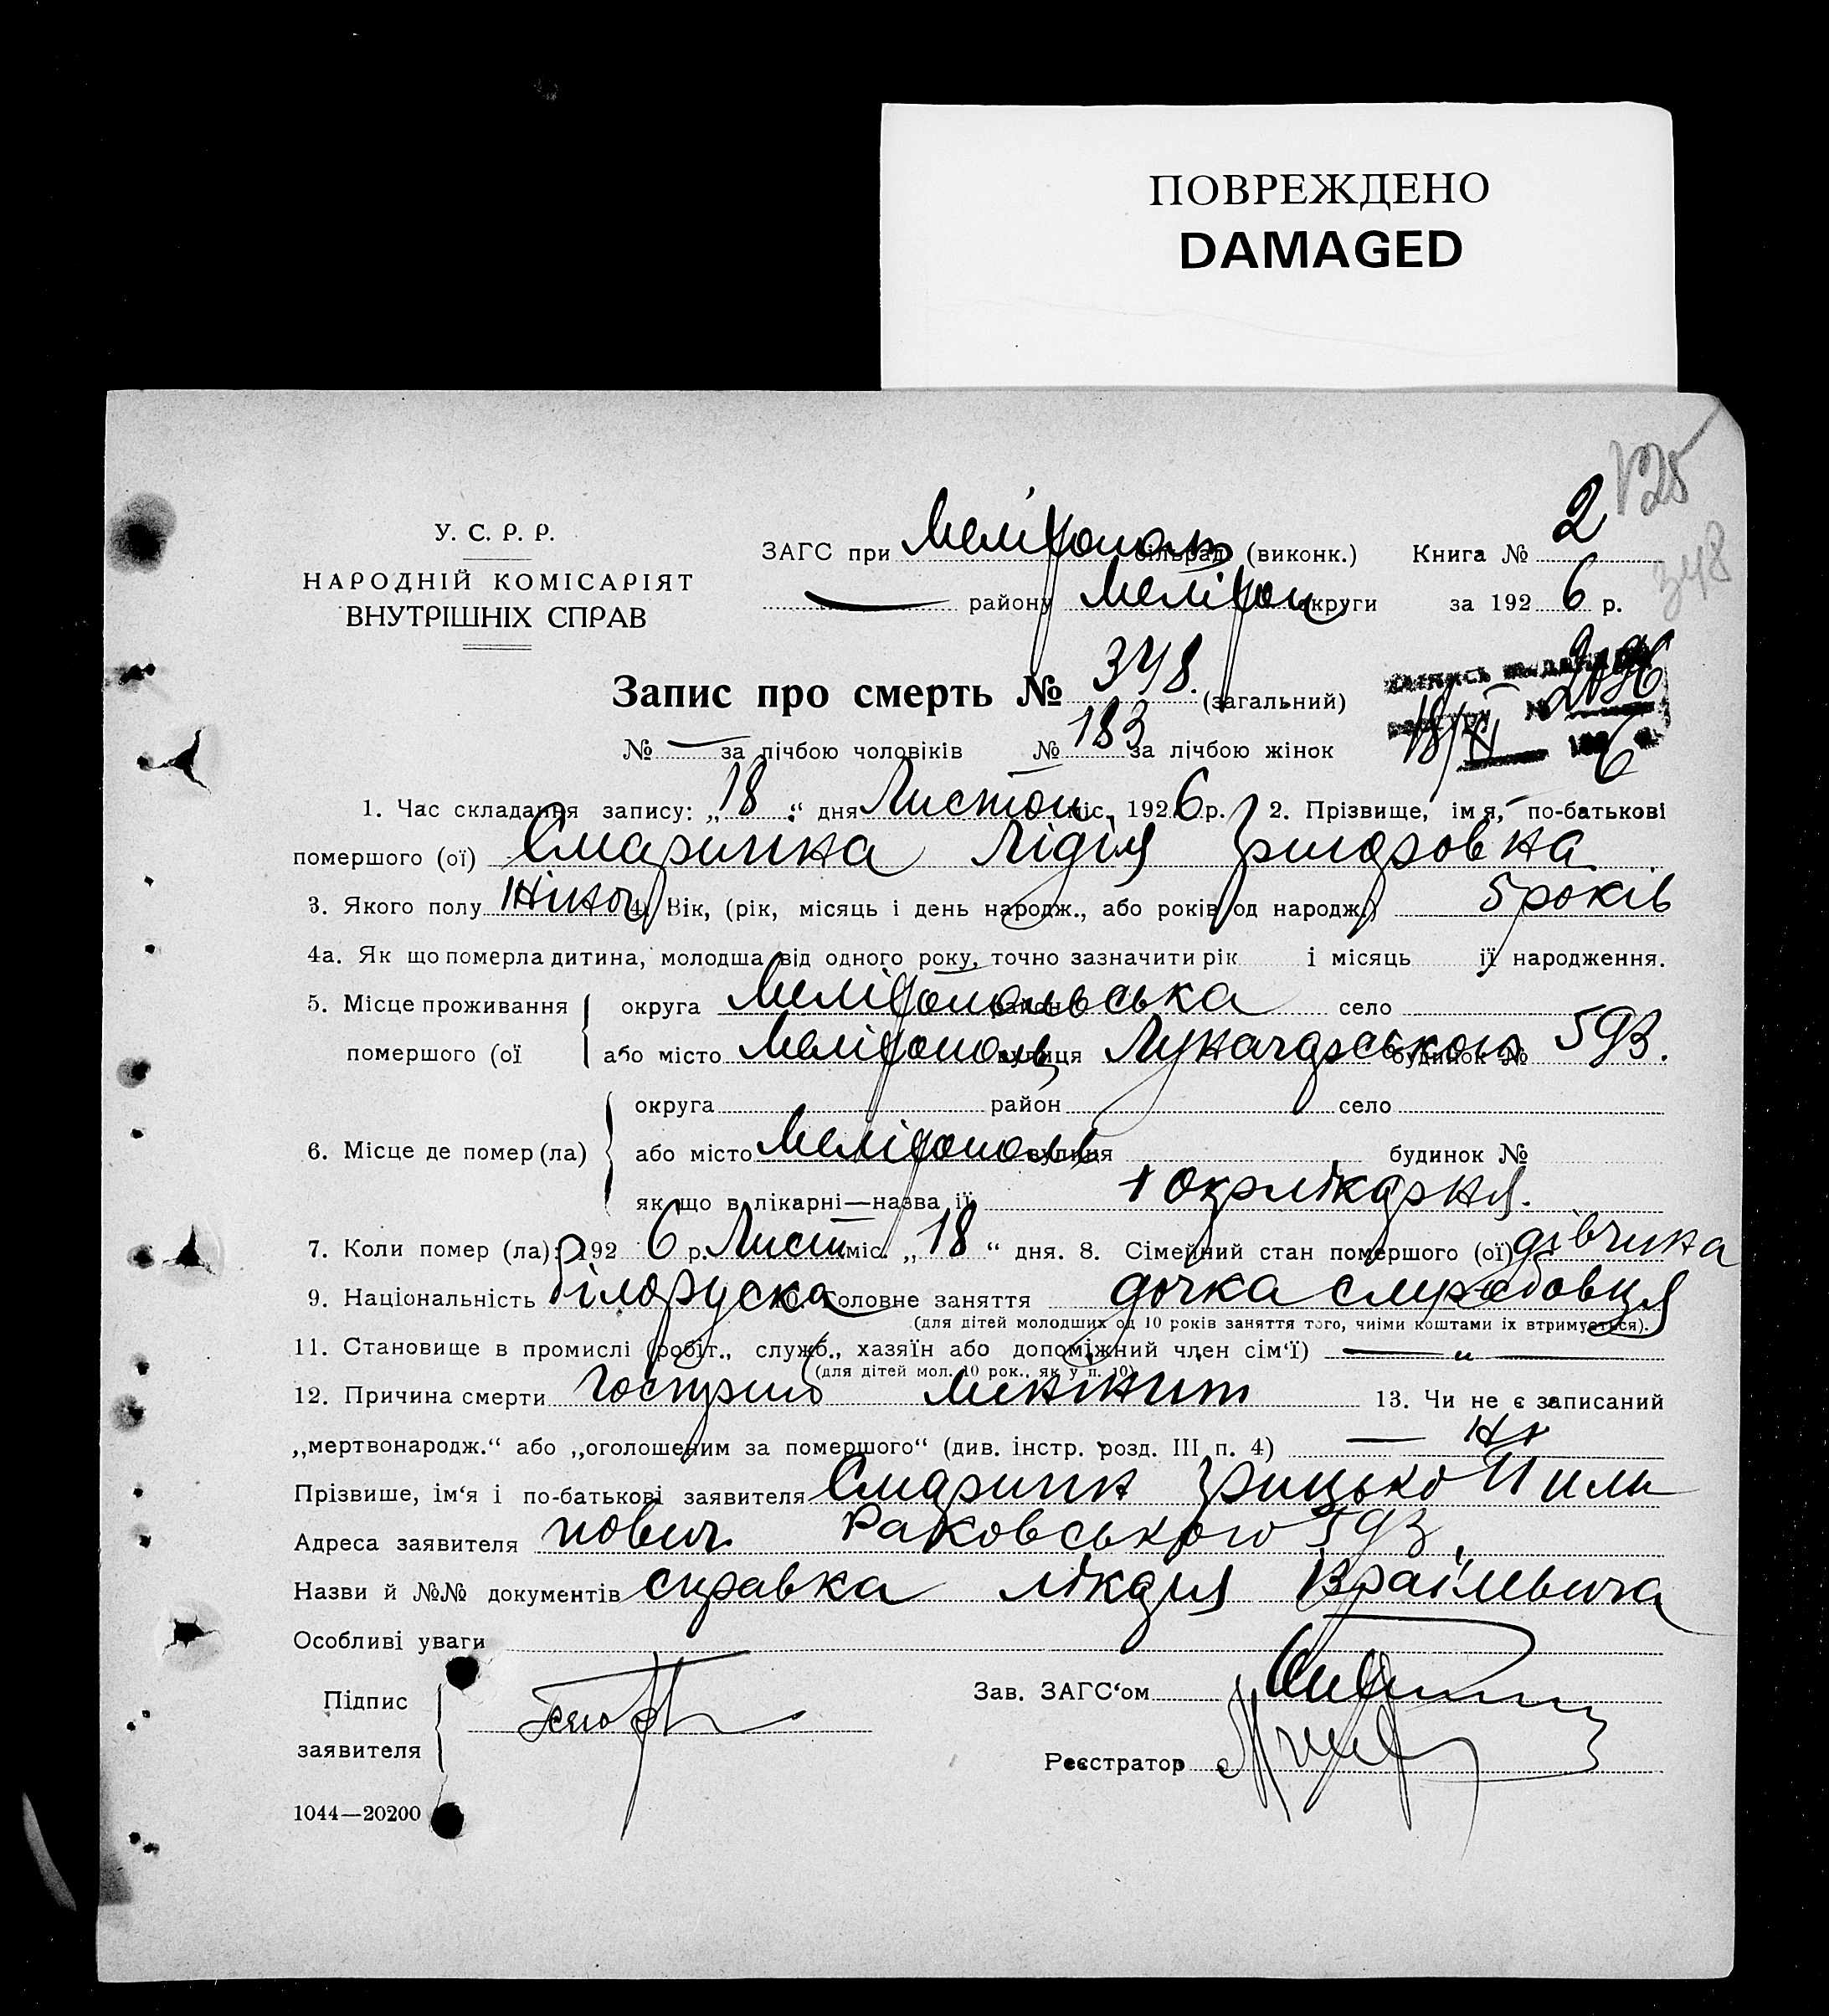 ПОВРЕЖДЕНО
DAMAGED
125
348
У. С. Р. Р.
НАРОДНІЙ КОМІСАРІЯТ
ВНУТРІШНІХ СПРАВ
ЗАГС при Меліτопольськ сільрад (виконк.) Книга № 2
району Меліτоп округи за 192 6 р.
Запис про смерть № 348. (загальний)
№ — за лічбою чоловіків № 183 за лічбою жінок
18/XI 6
1. Час складання запису: „ 18 “ дня Листоп міс. 192 6 р. 2. Прізвище, ім'я, по-батькові
помершого (ої) Лідія Григоровна
3. Якого полу Жіноч 4) Вік, (рік, місяць і день народж., або років од народж.) 5 років
4а. Як що померла дитина, молодша від одного року, точно зазначити рік і місяць її народження.
5. Місце проживання округа Мелітопольська район село
помершого (ої або місто Мелітополь вулиця Луначарського будинок № 593.
округа район село
6. Місце де помер (ла) або місто Мелітополь вулиця будинок №
як що в лікарні—назва її 1 Окрлікарня.
7. Коли помер (ла): 192 6 р. Лист міс. „ 18 “ дня. 8. Сімейний стан помершого (ої) дівчина
9. Національність білоруска 10. Головне заняття дочка службовця
(для дітей молодших од 10 років заняття того, чиїми коштами їх втримується).
11. Становище в промислі (робіт., служб., хазяїн або допоміжний член сім'ї) — „ —
(для дітей мол. 10 рок., як у п. 10)
12. Причина смерти Гострий менінгит 13. Чи не є записаний
„мертвонародж.“ або „оголошеним за помершого“ (див. інстр. розд. III п. 4) — Ні
Прізвише, ім'я і по-батькові заявителя Грицько Пили
Адреса заявителя пович Раковського 593,
Назви й №№ документів справка лікаря Враілевича
Особливі уваги
Підпис
заявителя
Зав. ЗАГС'ом
Реєстратор
1044—20200